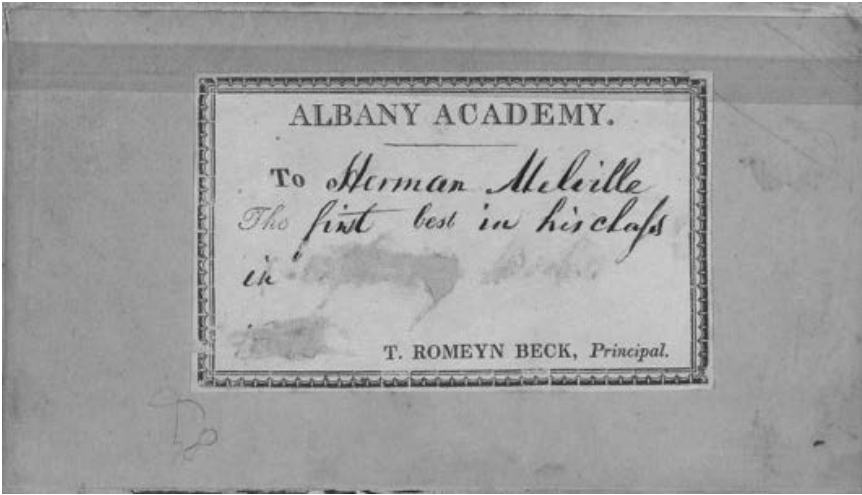 ALBANY ACADEMY.
To Herman Melville
The first best in his class
in
T. ROMEYN BECK, Principal.